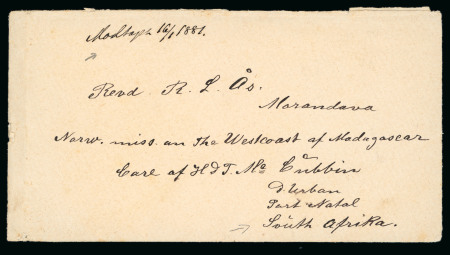 Modtagt 16/1 1881.
Revd R. L. Ås.
Morandava
Norw. miss. on The Westcoast of Madagascar
Care of H d T. Mc Cŭbbin
d'Urban
Port Natal
Soŭth Afrika.